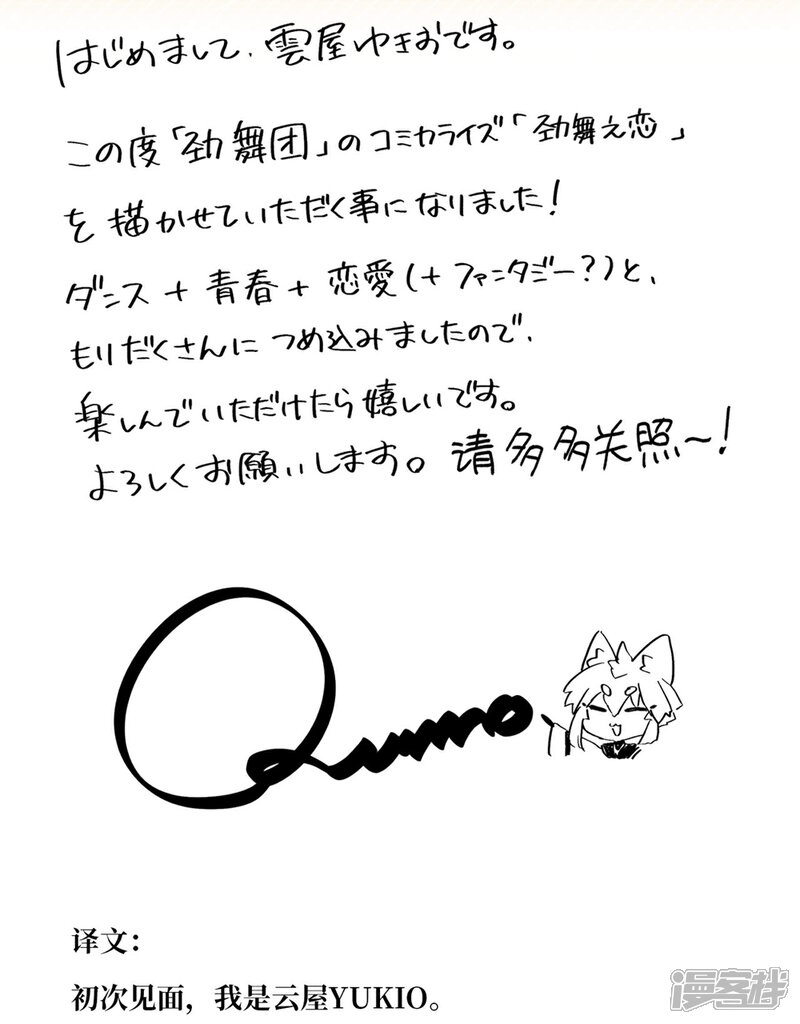 はじめまして、雲屋ゆきおです。
この度「劲舞团」のコミカライズ「劲舞之恋」
を描かせていただく事になりました!
ダンス+青春+恋愛(+ファンタジー?)と、
もりだくさんにつめ込みましたので、
楽しんでいただけたら嬉しいです。
よろしくお願いします。请多多关照~!
译文：
初次见面，我是云屋YUKIO。
漫客栈